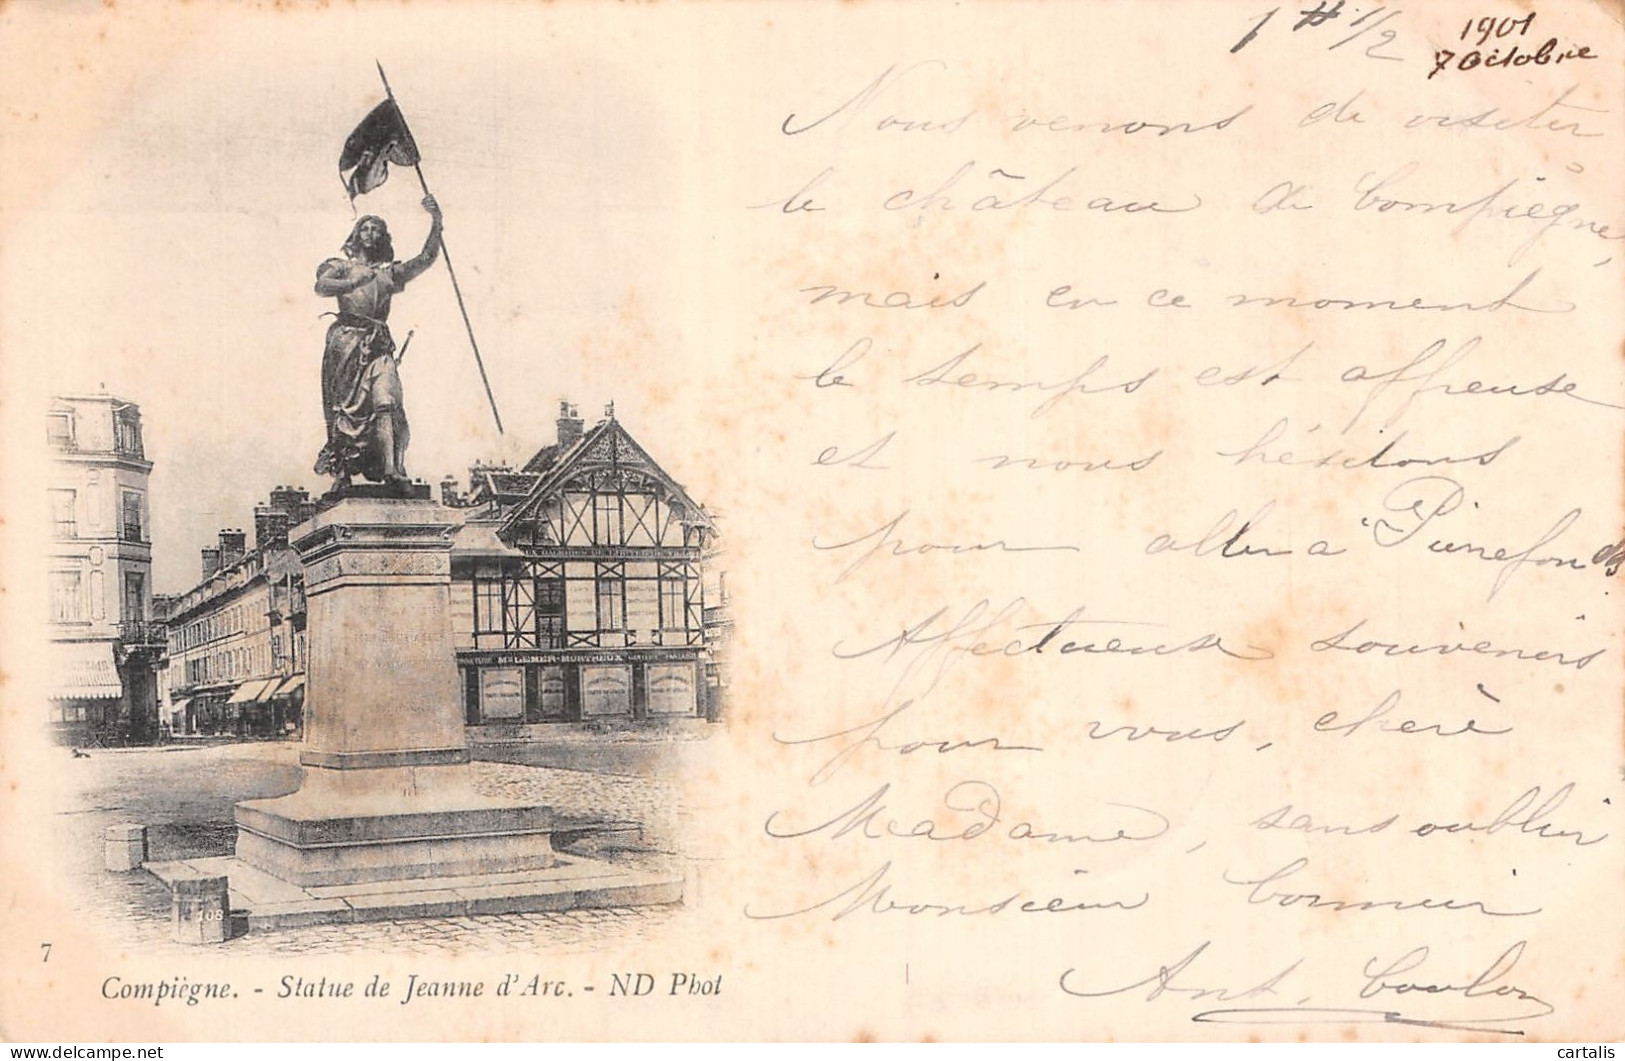 1901
7 Octobre
1 H 1/2
Nous venons de visiter
le château de Compiègne,
mais en ce moment
le temps est affreuse
et nous hésitons
pour aller à Pierrefonds
Affectueuse souvenirs
pour vous, cherè
Madame, sans oublier
Monsieur
Ant. Coulon
Mon LEMER-MONTREUX
108
7
Compiègne. - Statue de Jeanne d'Arc. - ND Phot
cartalis